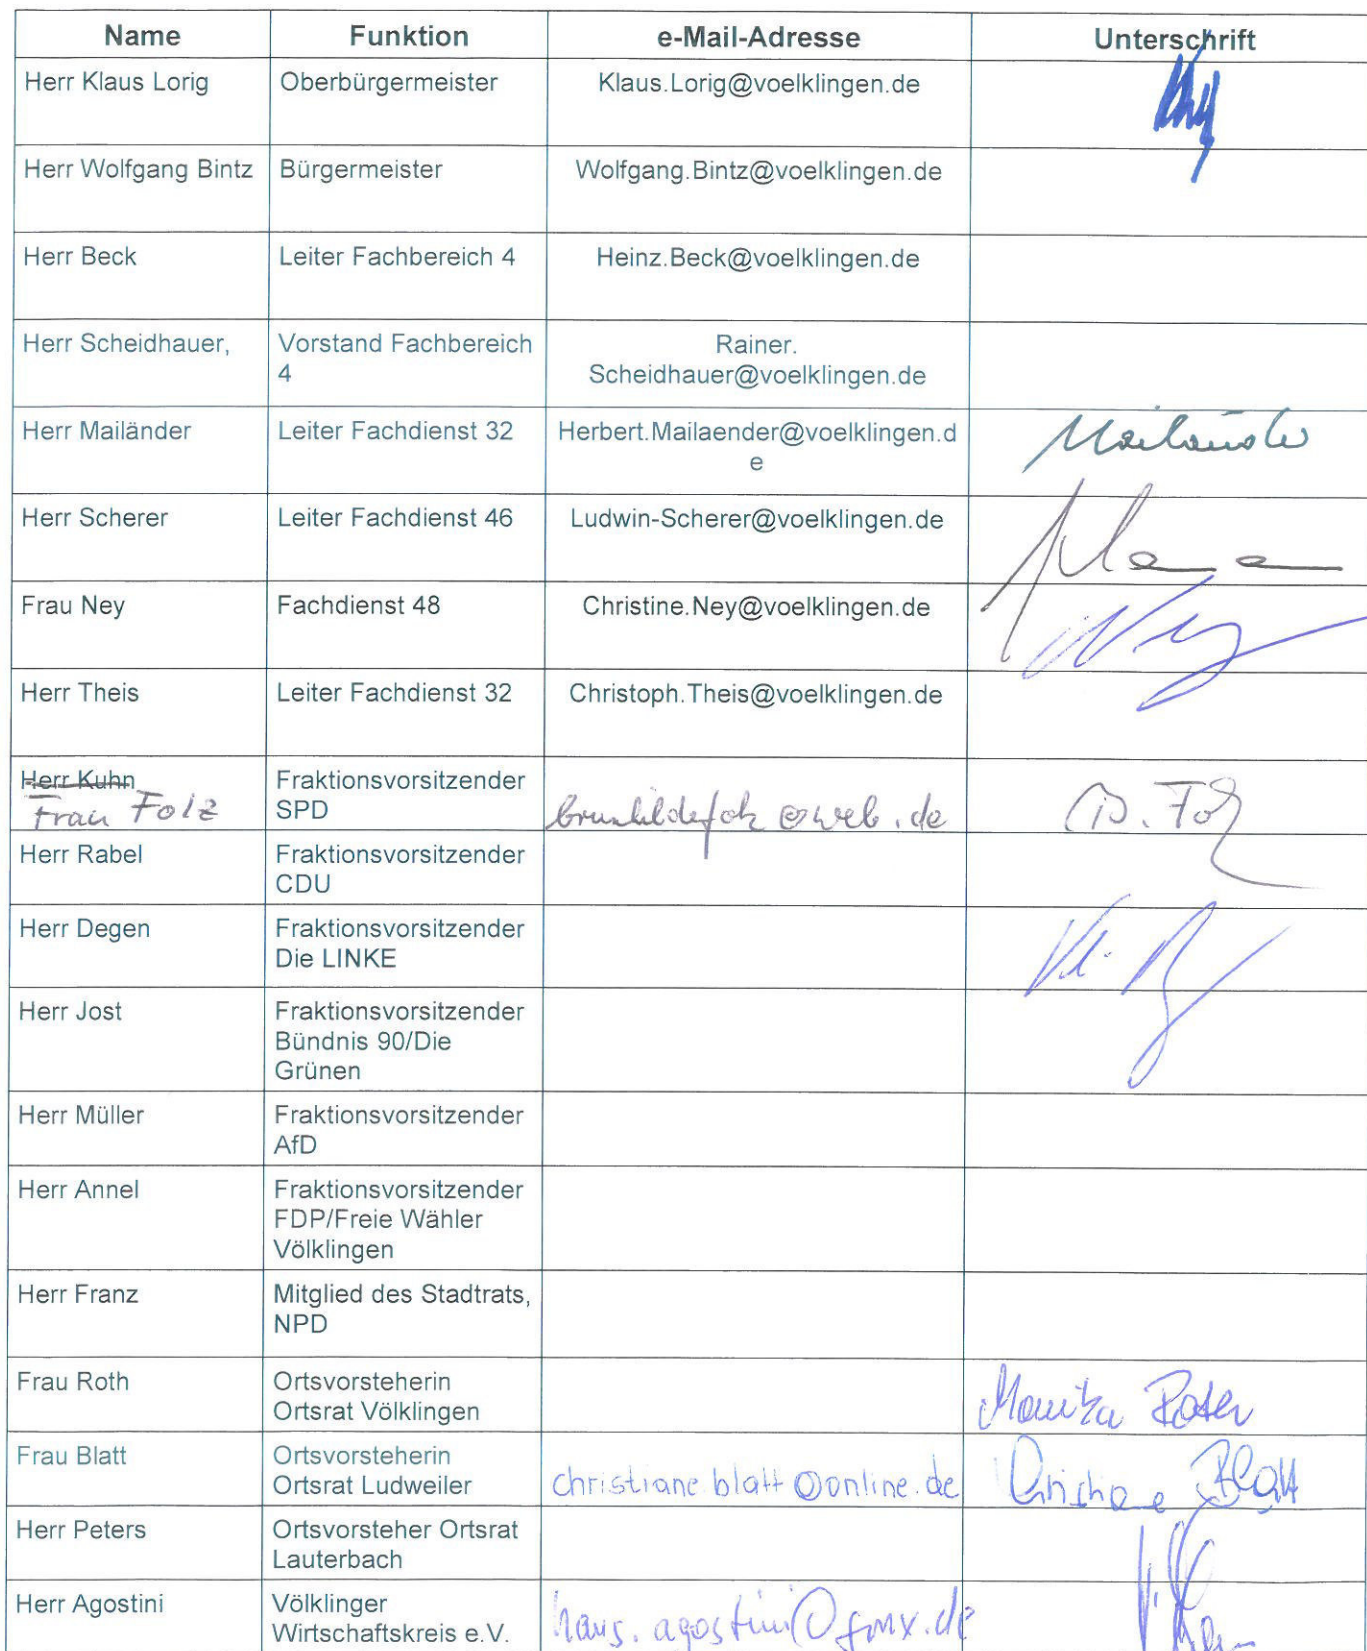 Name Funktion e-Mail-Adresse Unterschrift
Herr Klaus Lorig Oberbürgermeister Klaus.Lorig@voelklingen.de
Herr Wolfgang Bintz Bürgermeister Wolfgang.Bintz@voelklingen.de
Herr Beck Leiter Fachbereich 4 Heinz.Beck@voelklingen.de
Herr Scheidhauer, Vorstand Fachbereich Rainer.
4 Scheidhauer@voelklingen.de
Herr Mailänder Leiter Fachdienst 32 Herbert.Mailaender@voelklingen.d Mailänder
e
Herr Scherer Leiter Fachdienst 46 Ludwin-Scherer@voelklingen.de
Frau Ney Fachdienst 48 Christine.Ney@voelklingen.de Ney
Herr Theis Leiter Fachdienst 32 Christoph.Theis@voelklingen.de
Herr Kuhn Fraktionsvorsitzender
Frau Folz SPD @web.de B. Folz
Herr Rabel Fraktionsvorsitzender
CDU
Herr Degen Fraktionsvorsitzender
Die LINKE
Herr Jost Fraktionsvorsitzender
Bündnis 90/Die
Grünen
Herr Müller Fraktionsvorsitzender
AfD
Herr Annel Fraktionsvorsitzender
FDP/Freie Wähler
Völklingen
Herr Franz Mitglied des Stadtrats,
NPD
Frau Roth Ortsvorsteherin
Ortsrat Völklingen Monika Roth
Frau Blatt Ortsvorsteherin
Ortsrat Ludweiler christiane.blatt@online.de Christiane Blatt
Herr Peters Ortsvorsteher Ortsrat
Lauterbach
Herr Agostini Völklinger
Wirtschaftskreis e.V. haus.agostini@gmx.de